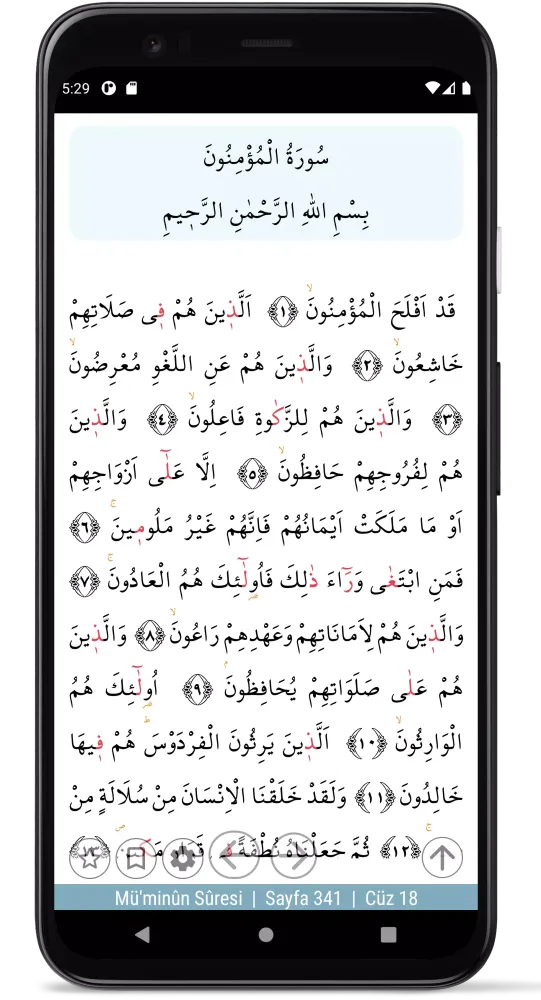 5:29
سُورَةُ الْمُؤْمِنُونَ
بِسْمِ اللهِ الرَّحْمٰنِ الرَّحٖيمِ
قَدْ اَفْلَحَ الْمُؤْمِنُونَۙ ﴿١﴾ اَلَّذٖينَ هُمْ فٖى صَلَاتِهِمْ
خَاشِعُونَۙ ﴿٢﴾ وَالَّذٖينَ هُمْ عَنِ اللَّغْوِ مُعْرِضُونَۙ
﴿٣﴾ وَالَّذٖينَ هُمْ لِلزَّكٰوةِ فَاعِلُونَۙ ﴿٤﴾ وَالَّذٖينَ
هُمْ لِفُرُوجِهِمْ حَافِظُونَۙ ﴿٥﴾ اِلَّا عَلٰٓى اَزْوَاجِهِمْ
اَوْ مَا مَلَكَتْ اَيْمَانُهُمْ فَاِنَّهُمْ غَيْرُ مَلُومٖينَۚ ﴿٦﴾
فَمَنِ ابْتَغٰى وَرَٓاءَ ذٰلِكَ فَاُولٰٓئِكَ هُمُ الْعَادُونَۚ ﴿٧﴾
وَالَّذٖينَ هُمْ لِاَمَانَاتِهِمْ وَعَهْدِهِمْ رَاعُونَۙ ﴿٨﴾ وَالَّذٖينَ
هُمْ عَلٰى صَلَوَاتِهِمْ يُحَافِظُونَۘ ﴿٩﴾ اُولٰٓئِكَ هُمُ
الْوَارِثُونَۙ ﴿١٠﴾ اَلَّذٖينَ يَرِثُونَ الْفِرْدَوْسَؕ هُمْ فٖيهَا
خَالِدُونَ ﴿١١﴾ وَلَقَدْ خَلَقْنَا الْاِنْسَانَ مِنْ سُلَالَةٍ مِنْ
﴿١٢﴾ ثُمَّ جَعَلْنَاهُ نُطْفَةً فٖى قَرَارٍ ﴿١٣﴾
Mü'minûn Sûresi | Sayfa 341 | Cüz 18